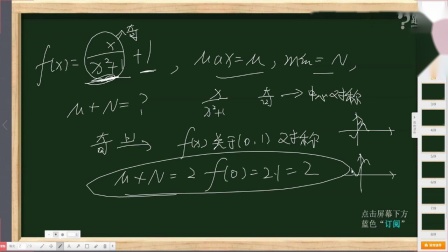 奇
f(x) = x/(x²+1) + 1 , max = M , min = N ,
M + N = ? x/(x²+1) 奇 → 对称
奇 上1 → f(x) 关于 (0,1) 对称
M + N = 2 f(0) = 2·1 = 2
点击屏幕下方
蓝色“订阅”